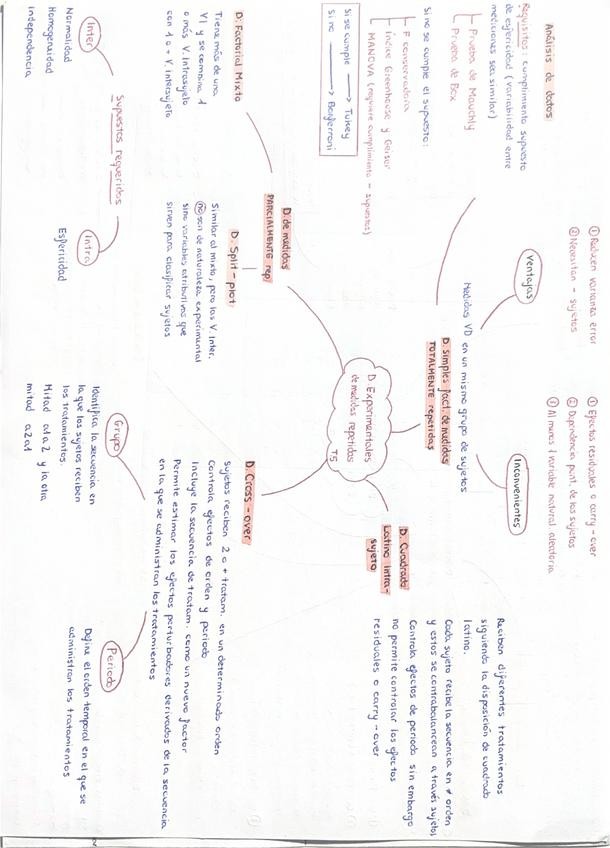 D. Experimentales
de medidas repetidos
T5
D. simples fact. de medidas
TOTALMENTE repetidas
Medidas VD en un mismo grupo de sujetos
Ventajas
① Reducen varianza error
② Necesitan - sujetos
Inconvenientes
① Efectos residuales o carry-over
② Dependencia punt. de los sujetos
① Al menos 1 variable natural aleatoria
Análisis de datos
Requisitos: cumplimiento supuesto
de esfericidad (variabilidad entre
mediciones sea similar)
Prueba de Mauchly
Prueba de Box
Si no se cumple el supuesto:
F conservadora
Índice Greenhouse y Geisser
MANOVA (requiere cumplimiento - supuestos)
Si se cumple → Tukey
Si no → Bonferroni
D. Cuadrado
Latino Intra-
sujeto
Reciben diferentes tratamientos
siguiendo la disposición de cuadrado
latino.
Cada sujeto recibe la secuencia en ≠ orden
y estos se contrabalancean a través sujetos
Controla efectos de periodo sin embargo
no permite controlar los efectos
residuales o carry-over
D. de medidas
PARCIALMENTE rep.
D. Factorial Mixto
Tiene más de una
VI y se combina 1
o más V. Intrasujeto
con 1 o + V. intersujeto
D. Split-plot
Similar al mixto, pero las V. Inter.
no son de naturaleza experimental
sino variables atributivas que
sirven para clasificar sujetos
Supuestos requeridos
Inter
Normalidad
Homogeneidad
Independencia
Intra
Esfericidad
D. Cross-over
Sujetos reciben 2 o + tratam. en un determinado orden
Controla efectos de orden y periodo
Incluye la secuencia de tratam. como un nuevo factor
Permite estimar los efectos perturbadores derivados de la secuencia
en la que se administran los tratamientos
Grupo
Identifica la secuencia en
la que los sujetos reciben
los tratamientos.
Mitad a1 a2 y la otra
mitad a2 a1
Periodo
Define el orden temporal en el que se
administran los tratamientos